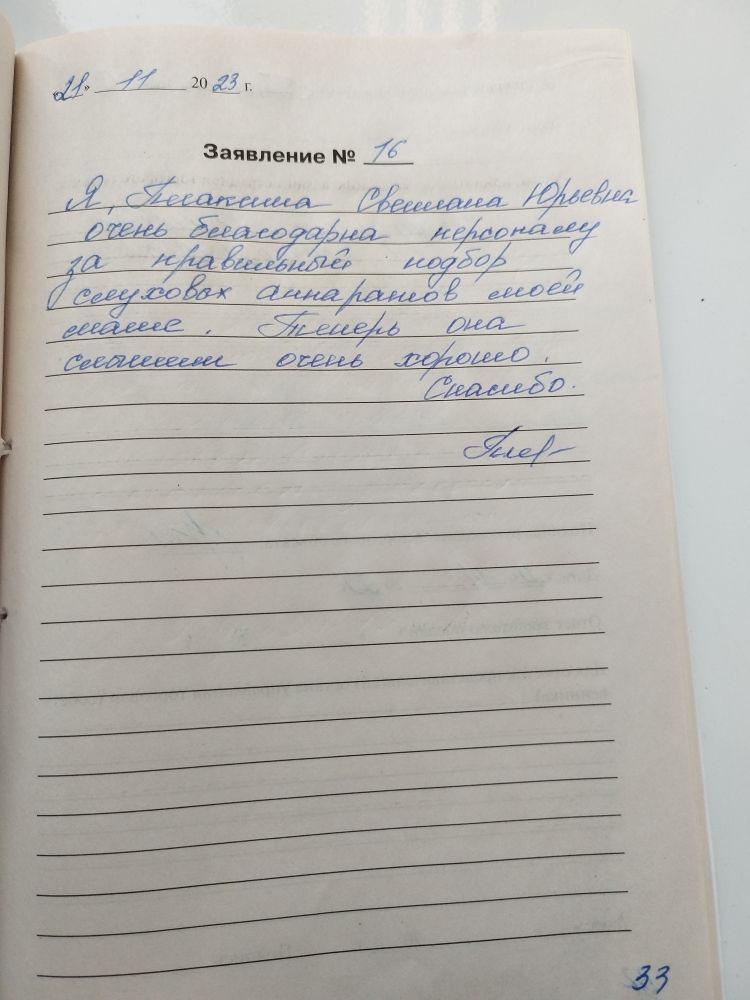 «21» 11 2023 г.
Заявление № 16
Я, Светлана Юрьевна
очень благодарна персоналу
за правильный подбор
слуховых аппаратов моей
маме. Теперь она
слышит очень хорошо.
Спасибо.
33